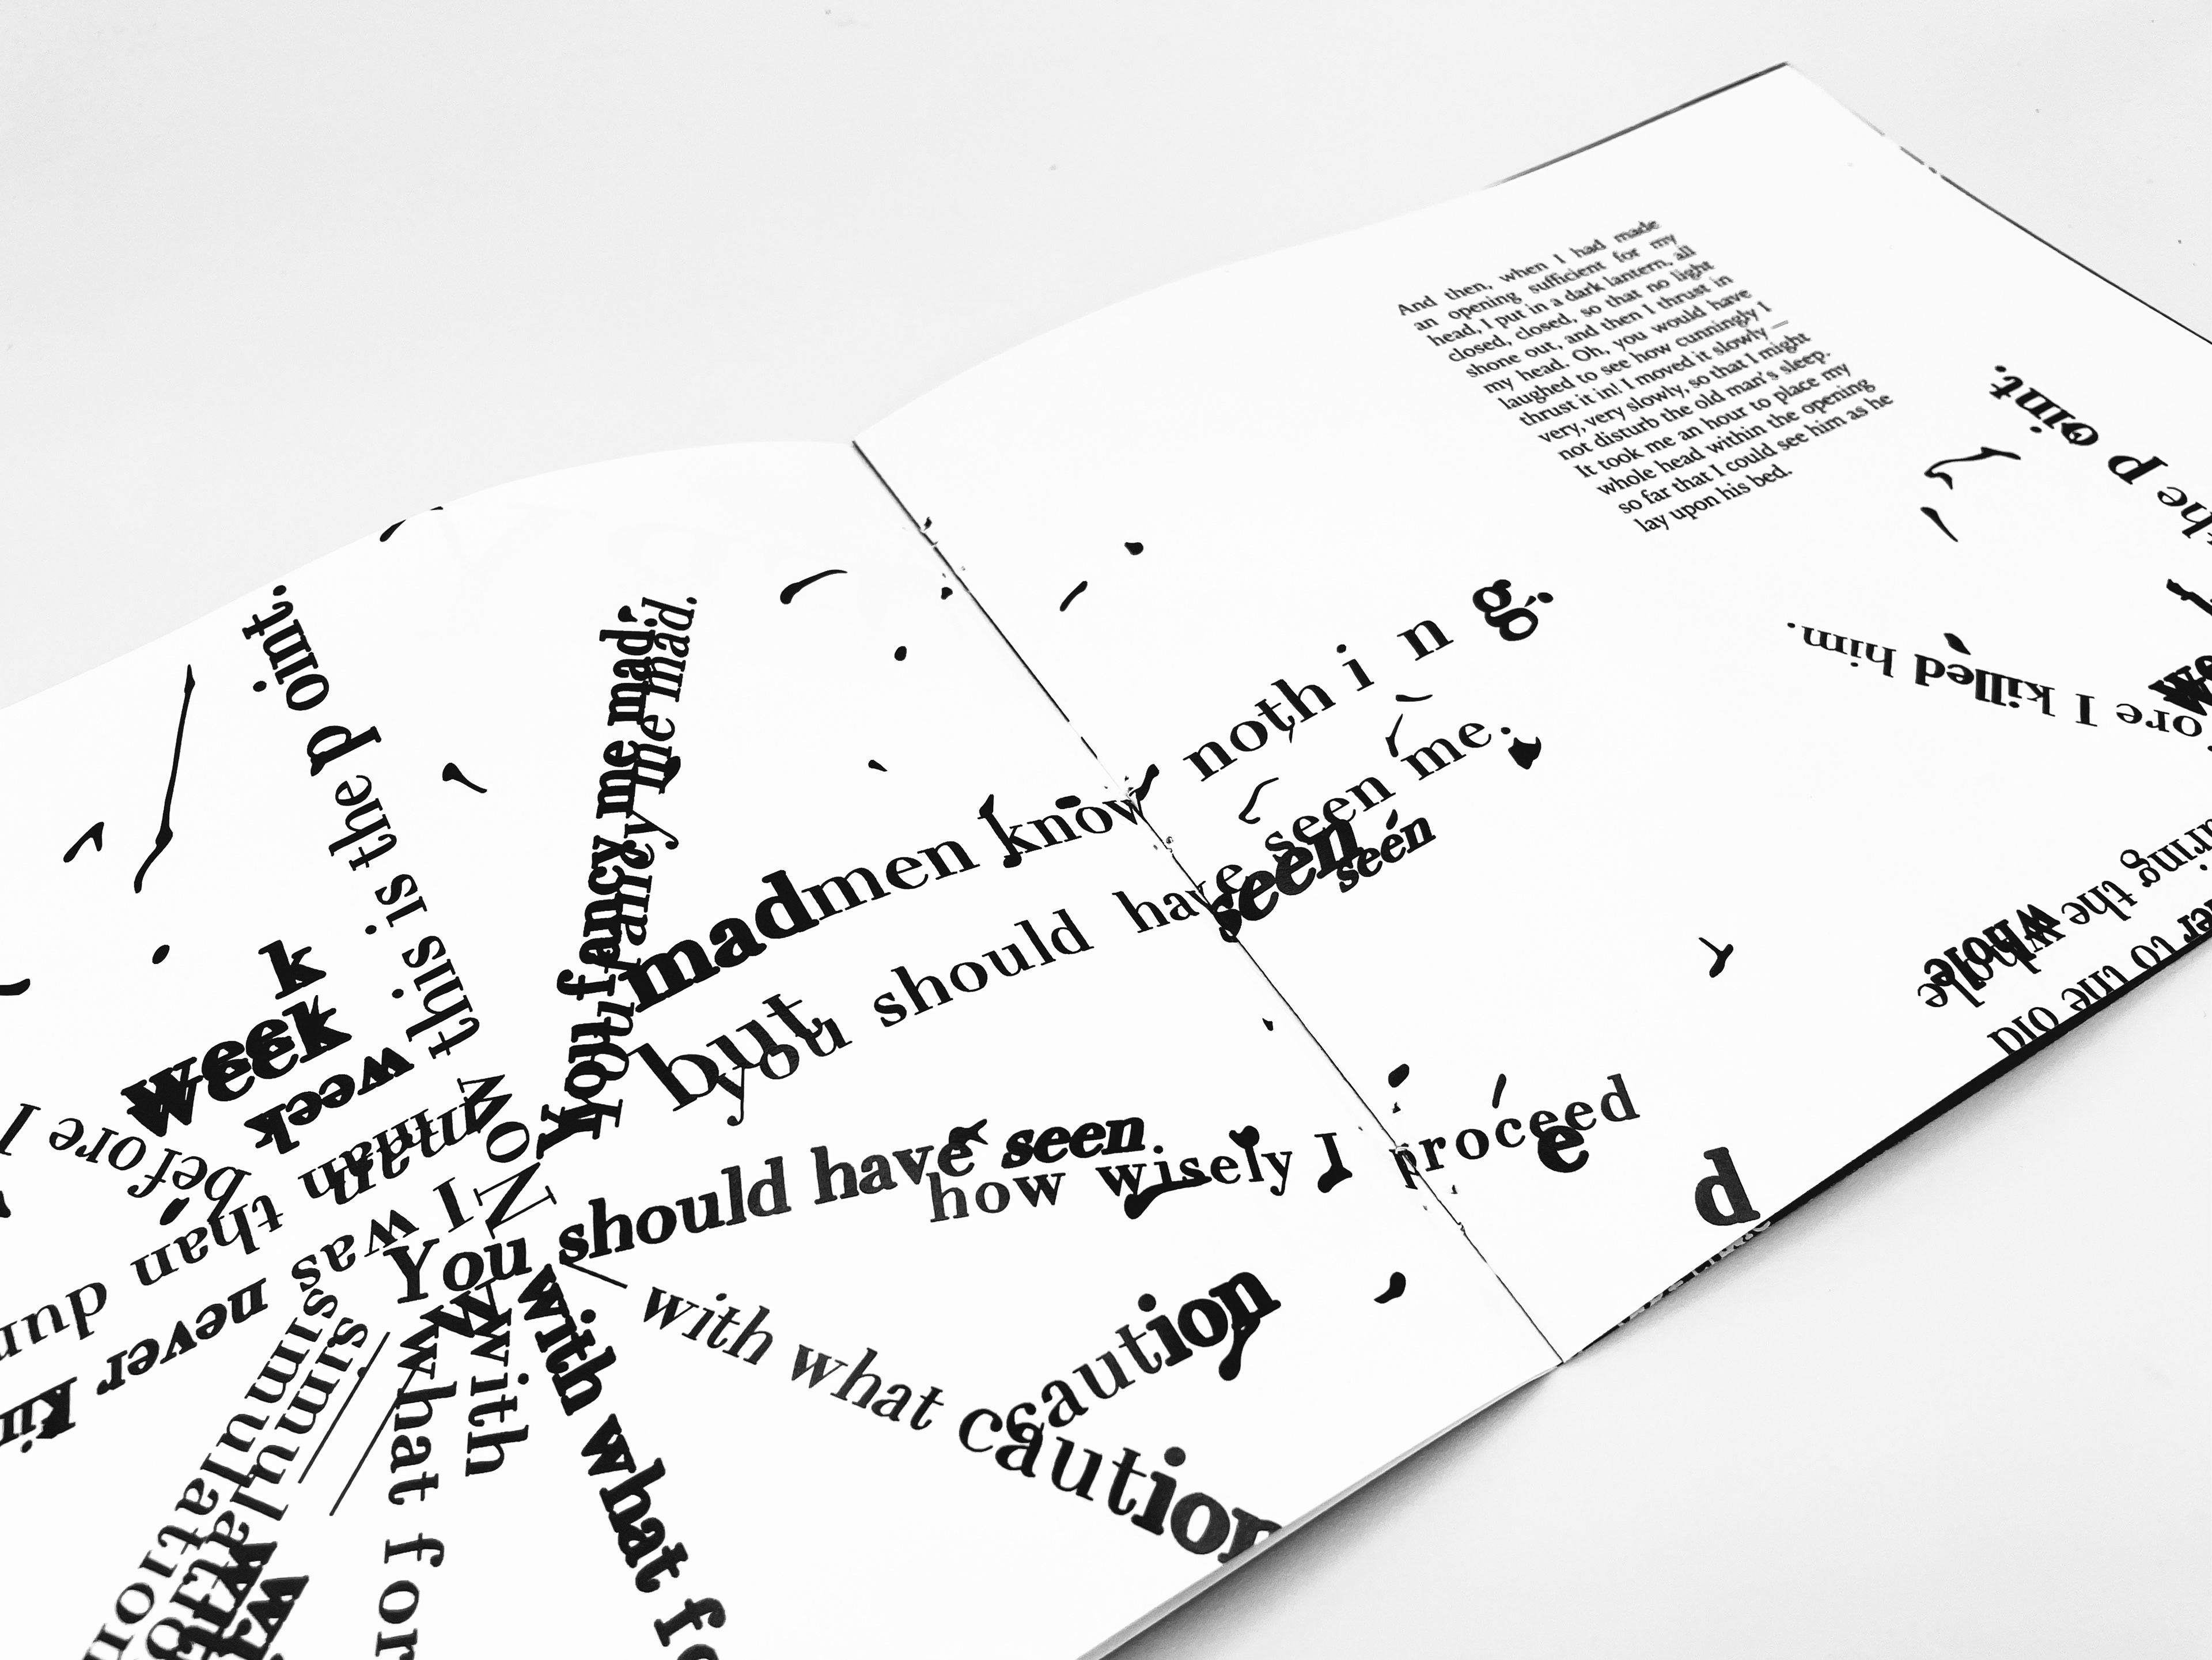 And then, when I had made
an opening sufficient for my
head, I put in a dark lantern, all
closed, closed, so that no light
shone out, and then I thrust in
my head. Oh, you would have
laughed to see how cunningly I
thrust it in! I moved it slowly —
very, very slowly, so that I might
not disturb the old man's sleep.
It took me an hour to place my
whole head within the opening
so far that I could see him as he
lay upon his bed.
Now this is the p oint.
You fancy me mad.
you fancy me mad.
madmen know noth i n g.
g.
but
you should have seen me.
seen
seen
You should have seen
how wisely I proceed
e
d
with what caution
caution
with what fo
with
what for
k
week
week
before I
man than dur
I was never kin
simulation
simulation
he p oint.
ore I killed him.
ring the whole
whole
er to the old